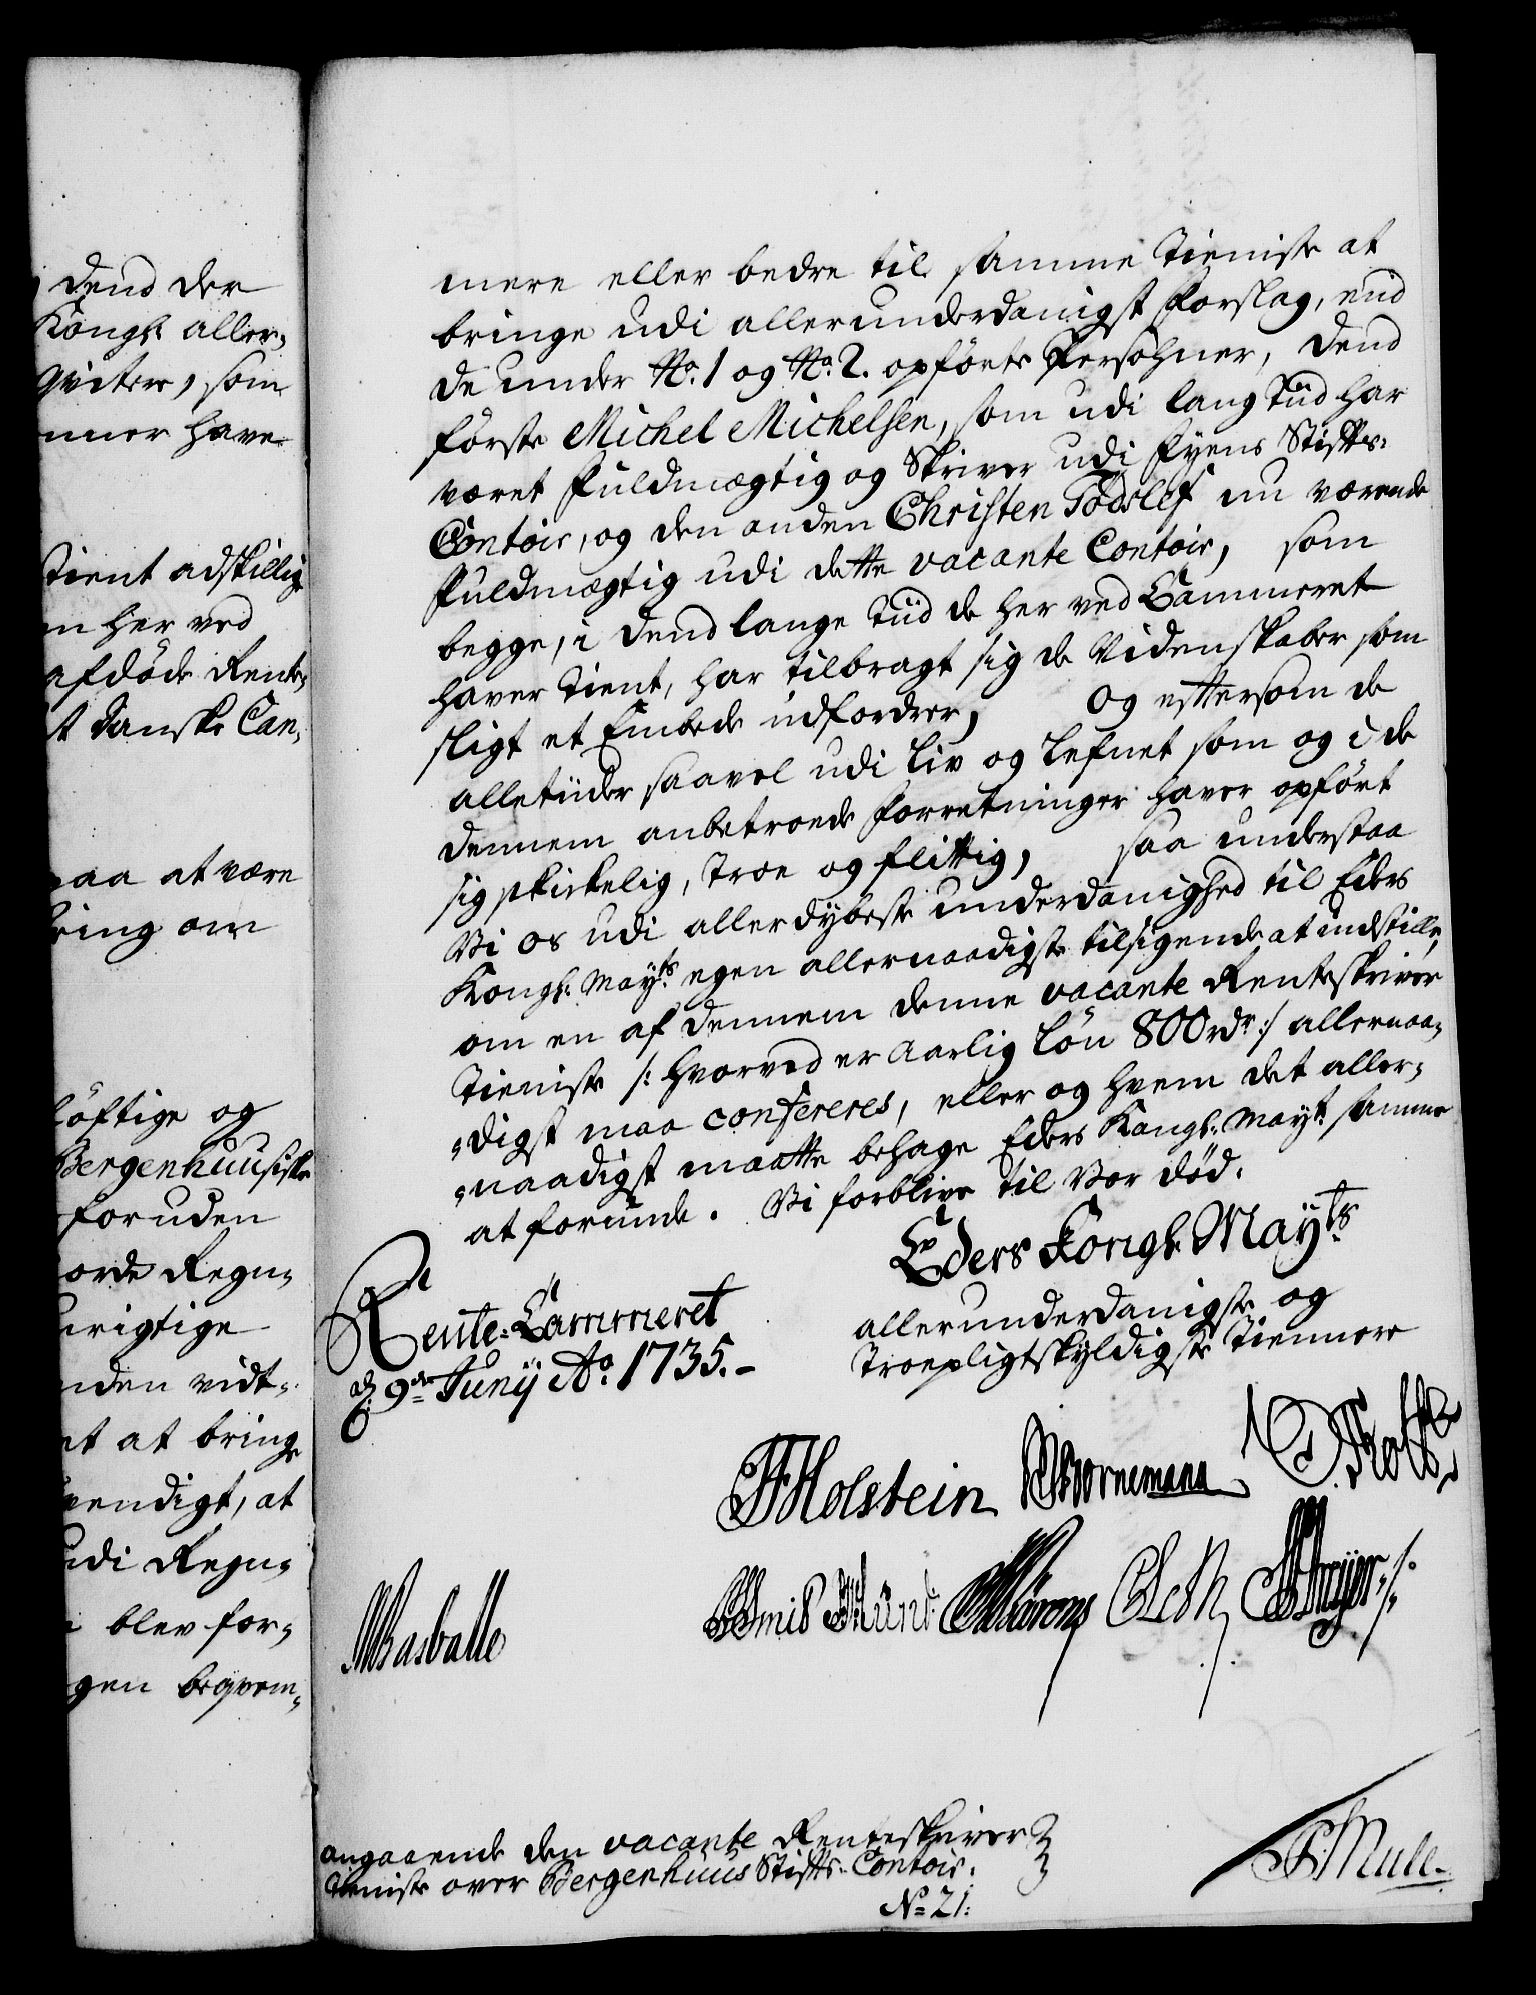 dend der
Kongl: aller-
qviterer, som
nner have
tient adskillig
n her ved
afdöde Rente-
t danske Can-
paa at være
ring om
löftige og
Bergenhuusiske
foruden
orde Regn-
urigtige
nden vidt-
et at bringe
vendigt, at
udi Regn-
blev for-
gen beqvem-
mere eller bedre til samme Tieniste at
bringe udi allerunderdanigst Forslag, end
de under No. 1 og No. 2. opförte Persohner, dend
förste Michel Michelsen, som udi lang Tiid har
været Fuldmægtig og Skriver udi Fyens Stifts-
Contoir, og den anden Christen Todslef nu værende
Fuldmægtig udi dette vacante Contoir, som
begge, i dend lange Tiid de her ved Cammeret
haver tient, har tilbragt sig de Videnskaber som
sligt et Embede udfordrer, og eftersom de
alletiider saavel udi Liv og Lefnet som og i de
dennem anbetroede Forretninger haver opfört
sig skickelig, troe og flittig, saa understaa
Vi os udi allerdybeste underdanighed til Eders
Kongl: Mayts egen allernaadigste tilsigende at indstille,
om en af dennem denne vacante Renteskriver
Tieniste /: hvorved er Aarlig Lön 800 rdr :/ allernaa-
digst maa confereres, eller og hvem det aller-
naadigst maatte behage Eders Kongl: Mayt: samme
at forunde. Vi forblive til Vor död.
Eders Kongl. Mayts
allerunderdanigste og
Troepligtskyldigste Tiennere
Rente-Cammeret
d: 9de Junij Ao. 1735.-
JFHolstein Bornemana
CSmid
Angaaende den vacante Renteskriver
Tieniste over Bergenhuus Stifts-Contoir.
No 21.
P. Mule